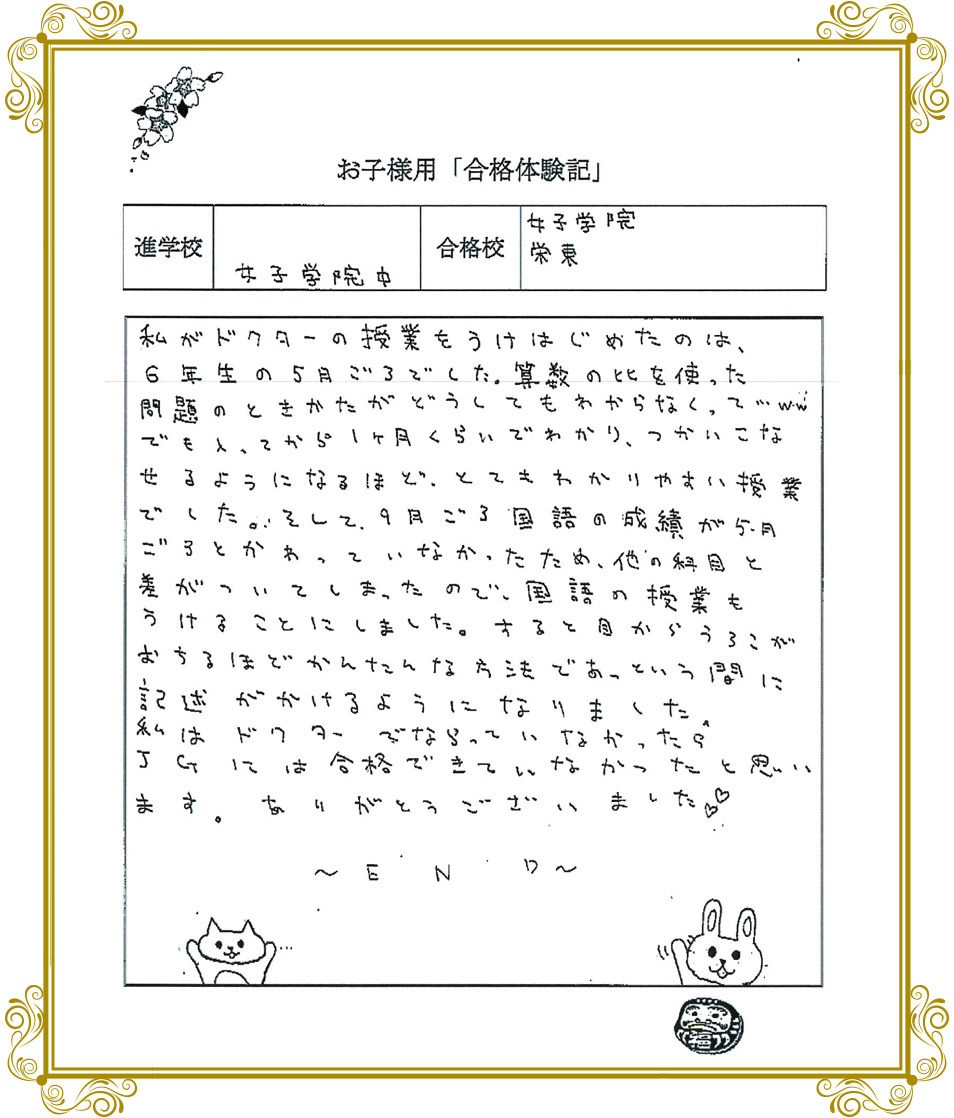 お子様用「合格体験記」
進学校
女子学院中
合格校
女子学院
栄東
私がドクターの授業をうけはじめたのは、
6年生の5月ごろでした。算数の比を使った
問題のときかたがどうしてもわからなくって…ww
でも入ってから1ヶ月くらいでわかり、つかいこな
せるようになるほど、とてもわかりやすい授業
でした。そして、9月ごろ国語の成績が5月
ごろとかわっていなかったため、他の科目と
差がついてしまったので、国語の授業も
うけることにしました。すると目からうろこが
おちるほどかんたんな方法であっという間に
記述がかけるようになりました。
私はドクターでならっていなかったら
JGには合格できていなかったと思い
ます。ありがとうございました♡♡
～END～
福